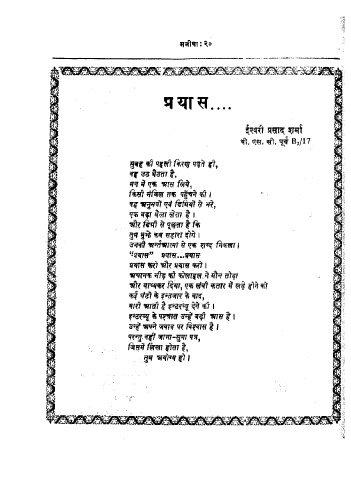 मनीषा : २०
प्रयास....
ईश्वरी प्रसाद शर्मा
बी. एस. सी. पूर्व B₂/17
सुबह की पहली किरण पड़ते ही,
वह उठ बैठता है,
मन में एक आस लिये,
किसी मंजिल तक पहुँचने की ।
वह अनुभवों एवं डिग्रियों से भरे,
एक बड़ा थैला लेता है ।
और डिग्री से पूछता है कि
तुम मुझे कब सहारा दोगे ।
उनकी अर्न्तआत्मा से एक शब्द निकला ।
"प्रयास" प्रयास...प्रयास
प्रयास करो और प्रयास करो ।
अचानक भीड़ की कोलाहल ने मौन तोड़ा
और बाध्यकर दिया, एक लंबी कतार में खड़े होने को
कई घंटों के इन्तजार के बाद,
बारी आती है इन्टरव्यू देने की ।
इन्टरव्यू के पश्चात उन्हें बड़ी आस है ।
उन्हें अपने जवाब पर विश्वास है ।
परन्तु वहीं जाना-बुझा पत्र,
जिसमें लिखा होता है,
तुम अयोग्य हो ।